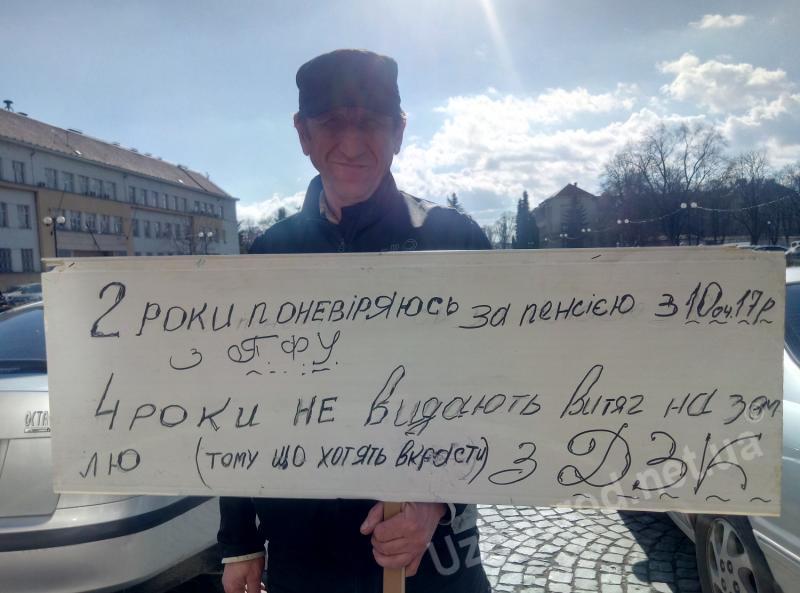 2 роки поневіряюсь за пенсією з 10.04.17р
з ПФУ
4 роки не видають витяг на зем
лю (тому що хотять вкрасти) з ДЗК
OCTA